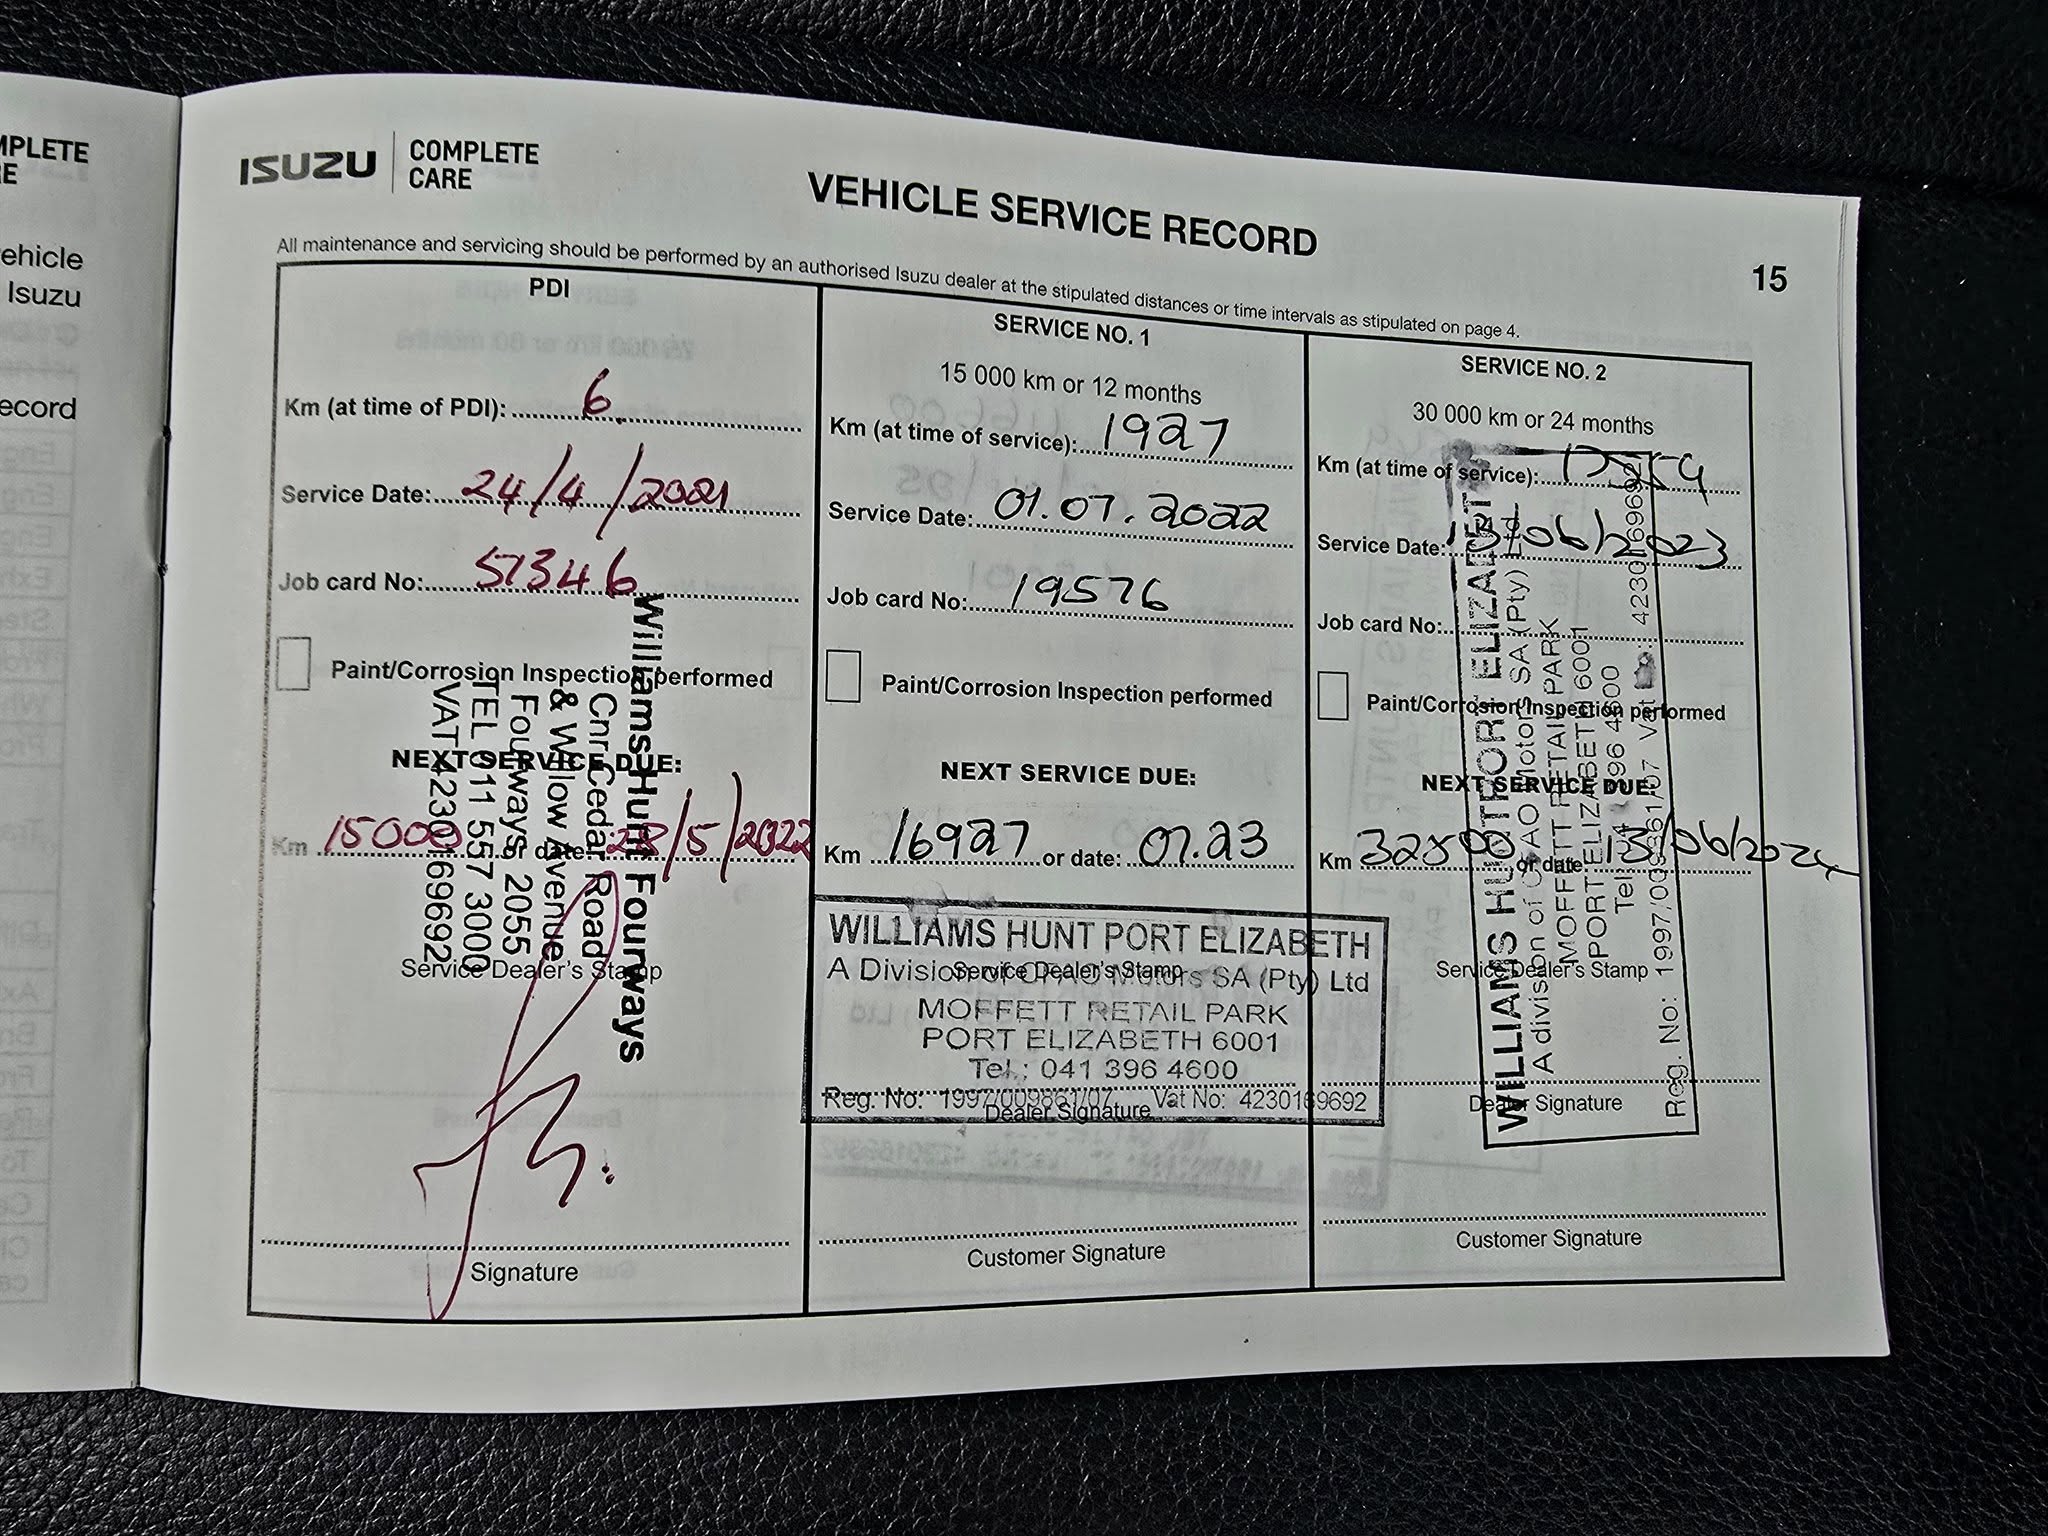 MPLETE
RE
ehicle
Isuzu
ecord
ISUZU COMPLETE
CARE
VEHICLE SERVICE RECORD
15
All maintenance and servicing should be performed by an authorised Isuzu dealer at the stipulated distances or time intervals as stipulated on page 4.
PDI
Km (at time of PDI): 6
Service Date: 24/4/2021
Job card No: 57346
Paint/Corrosion Inspection performed
NEXT SERVICE DUE:
Km 15000 or date: 28/5/2022
Williams Hunt Fourways
Cnr Cedar Road
& Willow Avenue
Fourways 2055
TEL 011 557 3000
VAT 4230169692
Service Dealer's Stamp
Signature
SERVICE NO. 1
15 000 km or 12 months
Km (at time of service): 1927
Service Date: 01.07.2022
Job card No: 19576
Paint/Corrosion Inspection performed
NEXT SERVICE DUE:
Km 16927 or date: 07.23
WILLIAMS HUNT PORT ELIZABETH
A Division of CFAO Motors SA (Pty) Ltd
Service Dealer's Stamp
MOFFETT RETAIL PARK
PORT ELIZABETH 6001
Tel.: 041 396 4600
Reg. No: 1997/009861/07 Vat No: 4230169692
Dealer Signature
Customer Signature
SERVICE NO. 2
30 000 km or 24 months
Km (at time of service):
Service Date: 13/06/2023
Job card No:
Paint/Corrosion Inspection performed
NEXT SERVICE DUE:
Km or date 13/06/2024
WILLIAMS HUNT PORT ELIZABET
A division of CFAO Motors SA (Pty) Ltd
MOFFETT RETAIL PARK
PORT ELIZABETH 6001
Tel: 041 396 4600
Reg. No: 1997/009861/07 Vat No: 4230169692
Service Dealer's Stamp
Dealer Signature
Customer Signature